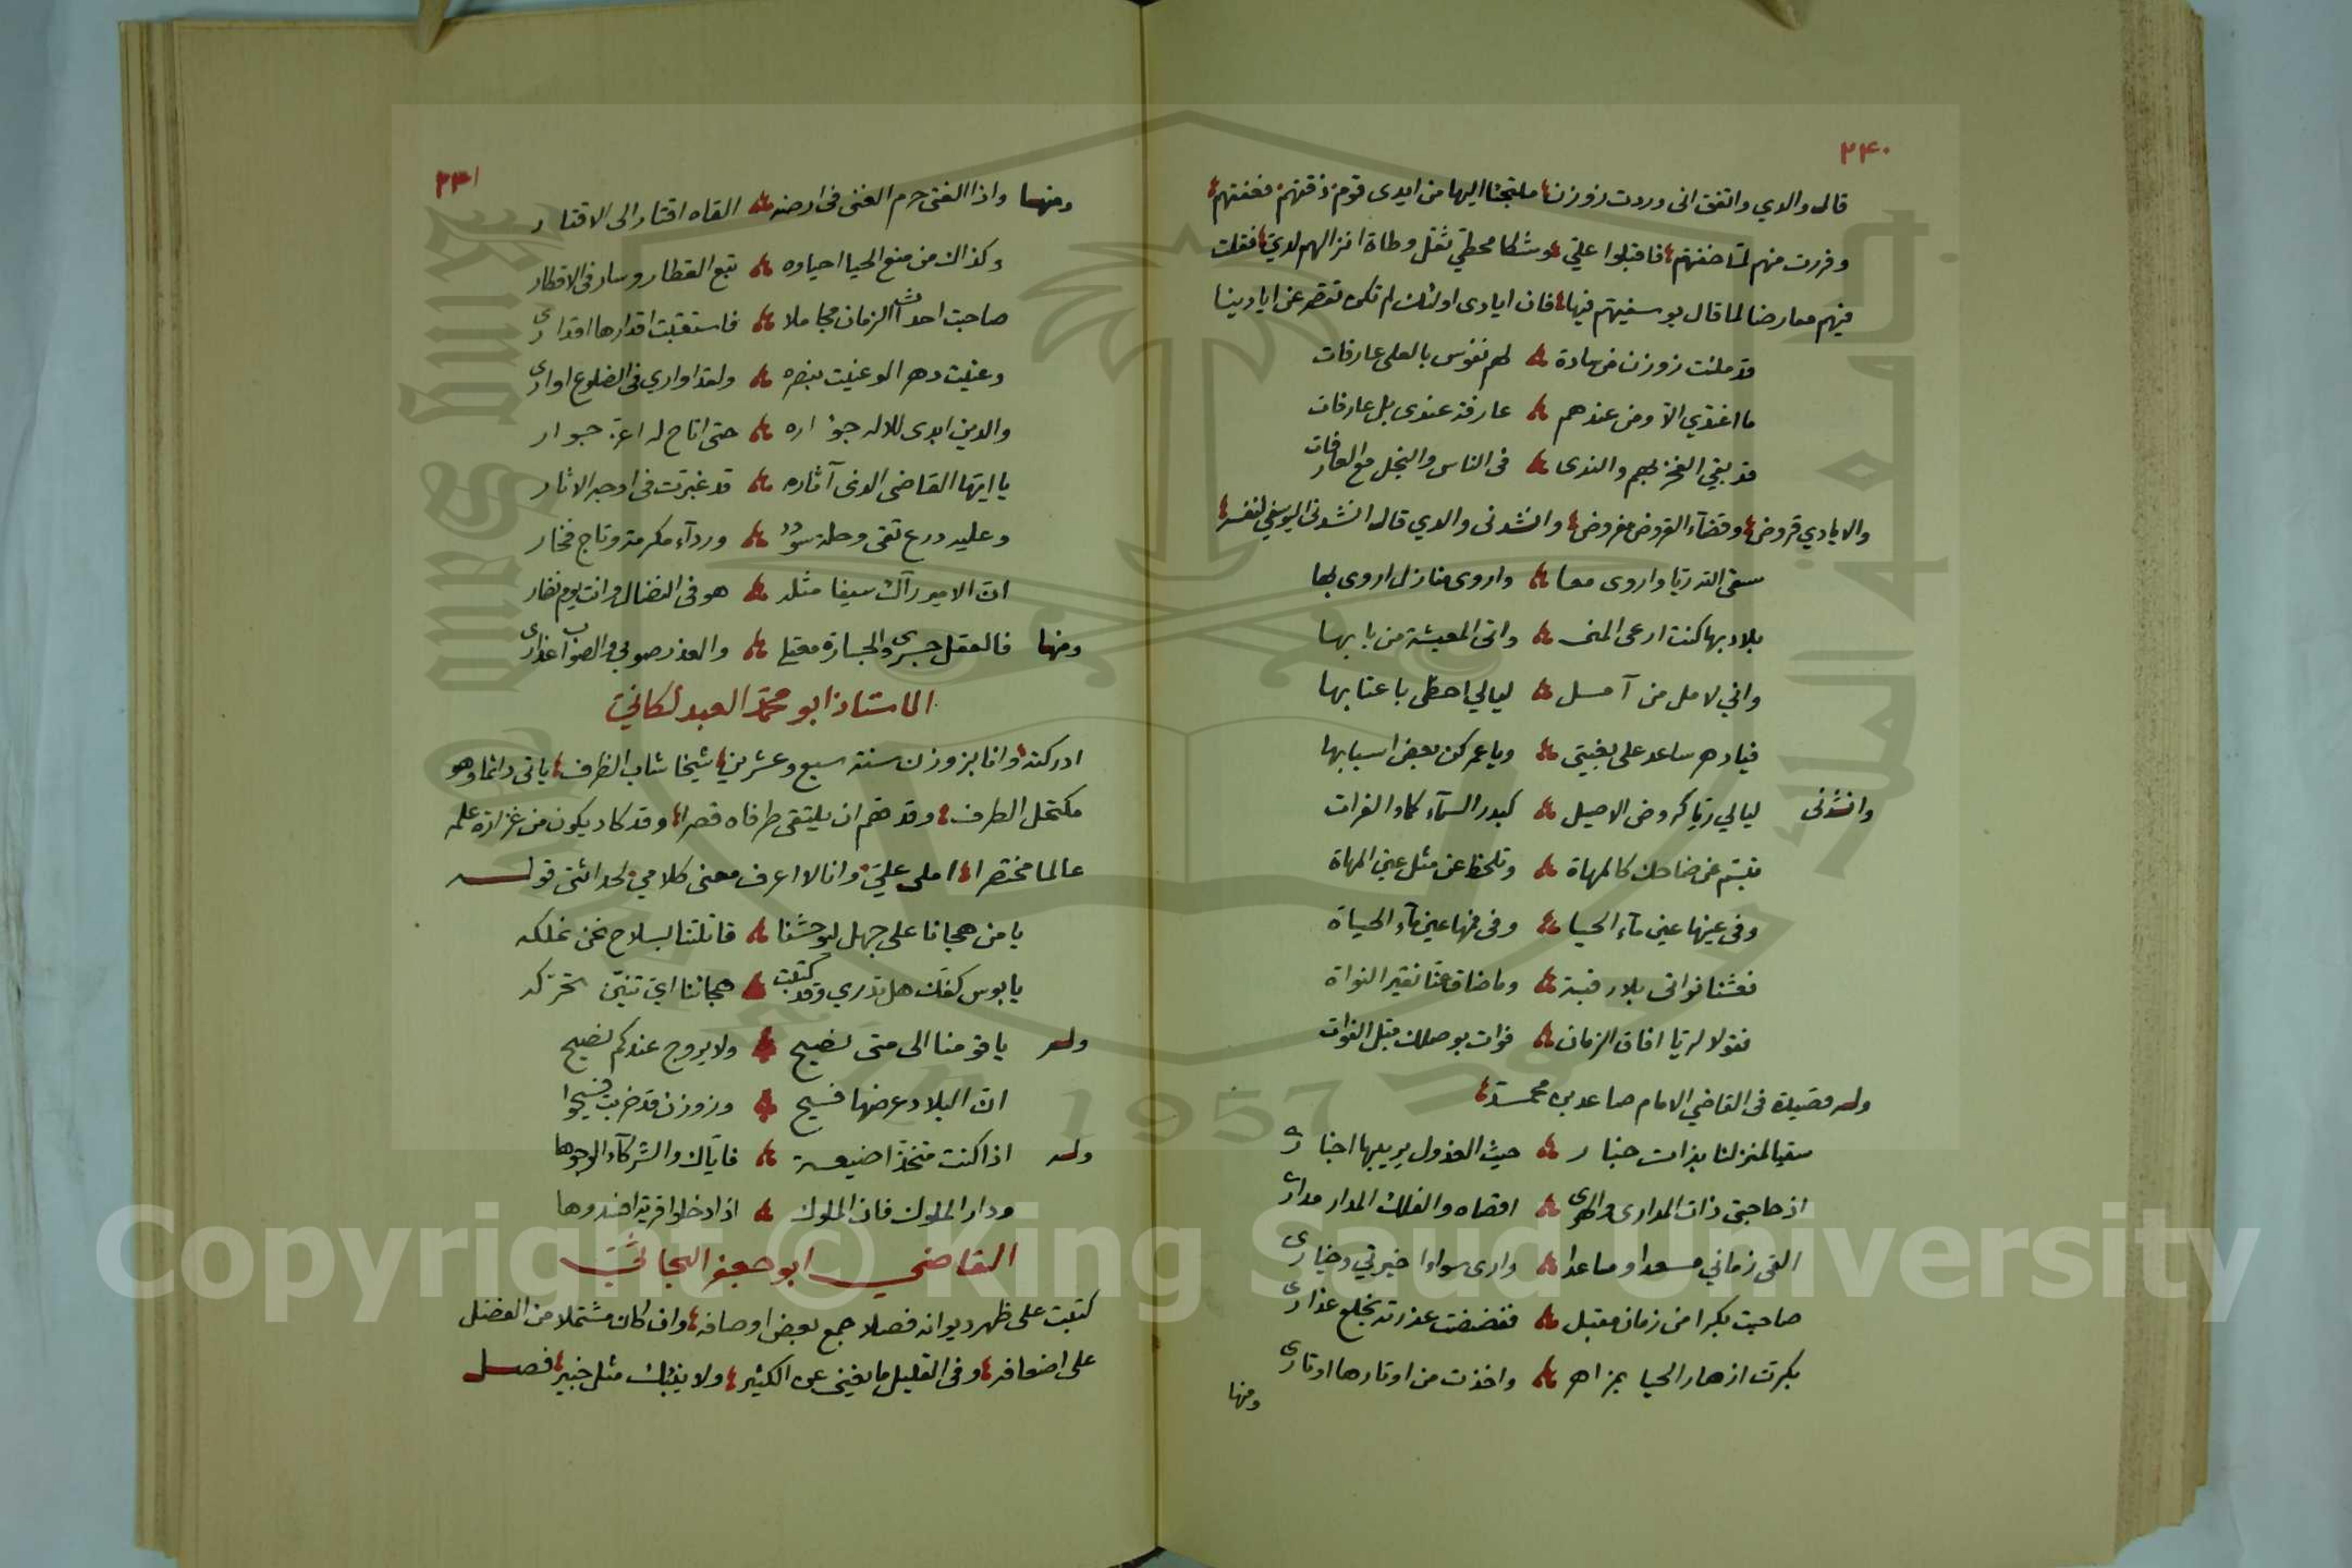 ٢٤٠
قال والدي واتفق اني وردت زوزن ملتجئا اليها من ايدى قوم ذقتهم فعفتهم
وفررت منهم لما خفتهم فاقبلوا علي وشكا محطي ثقل وطاة انزالهم لدي فقلت
فيهم معارضا لما قال يوسفيهم فيها فان ايادى اولئك لم تكن تقصر عن ايادينا
قد ملئت زوزن من سادة لهم نفوس بالعلى عارفات
ما اغتدي الا ومن عندهم عارفة عندى بل عارفات
قد بقي الفخر بهم والندى فى الناس والبخل مع العار فات
والايادي قروض وقضآء القروض مفروض وانشدنى والدي قال انشدنى اليوسفي لنفسه
سقى الله ريا واروى معا واروى منازل اروى بها
بلاد بها كنت ارعى المنى واتى المعيشة من بابها
واني لامل من آمل ليالي احظى باعتابها
فيادهر ساعد على بغيتى وياعمر كن بعض اسبابها
وانشدنى ليالي ريا كروض الاصيل كبدر السمآء كماء الفرات
تبسم عن ضاحك كالمهاة وتلحظ عن مثل عين المهاة
وفى عينها عين مآء الحيا وفى فمها عين مآء الحياة
فعشنا نواتى بلا رقبة وما ضاق عنا نقير النواة
فقولا لريا افاق الزمان فوات بوصلك قبل الفوات
وله قصيدة فى القاضي الامام صاعد بن محمد
سقيا لمنزلنا بذات حبار حيث العذول يريبها اجبارى
اذ حاجتى ذات المدارى والهوى اقصاه والفلك المدار مدارى
القى زماني مسعدا ومساعدا وارى سواءا خيرتي وخيارى
صاحبت بكرا من زمان مقبل ففضضت عذرته بخلع عذارى
بكرت ازهار الحيا بمزاهر واخذت من اوتارها اوتارى
ومنها
٢٤١
ومنها واذا الفتى حرم الغنى فى ارضه القاه اقتار الى الاقتار
وكذاك من منع الحيا احياوه تبع القطار وسار فى الاقطار
صاحبت احداث الزمان مجاملا فاستقبلت اقدارها اقدارى
وعنيت دهرا لو عنيت بنصره ولقد اوارى فى الضلوع اوارى
والدين ابدى للاله جؤاره حتى اتاح له اعز جوار
يا ايها القاضى الذى آثاره قد غبرت فى اوجه الاثار
وعليه درع تقى وحلة سؤدد وردآء مكرمة وتاج فخار
ان الامير رآك سيفا مثله هو فى النضال وانت يوم نفار
ومنها فالعقل جسرى والجسارة معقلى والعذر صوبى والصواب عذارى
الاستاذ ابو محمد العبدلكاني
ادركته وانا بزوزن سنة سبع وعشرين شيخا شاب الظرف ياتى دائما وهو
مكتحل الطرف وقد هم ان يلتقى طرفاه قصرا وقد كاد يكون من غزارة علمه
عالما مختصرا املى علي وانا لا اعرف معنى كلامي لحداثتى قوله
يا من هجانا على جهل ليوحشنا قاتلتنا بسلاح نحن نملكه
يا بوس كفك هل تدري وقد كتبت هجاننا اي تنين تحركه
وله يا قومنا الى متى نصيح ولا يروج عندكم نصيح
ان البلاد عرضها فسيح وزوزن قد خربت فسيحوا
وله اذا كنت متخذا ضيعة فاياك والشركآء الوجوها
ودار الملوك فان الملوك اذا دخلوا قرية افسدوها
القاضي ابو جعفر البحاثي
كتبت على ظهر ديوانه فصلا جمع بعض اوصافه وان كان مشتملا من الفضل
على اضعافه وفى القليل ما يغني عن الكثير ولا ينبئك مثل خبير فصل
Copyright © King Saud University
King Saud University
جامعة الملك سعود
1957